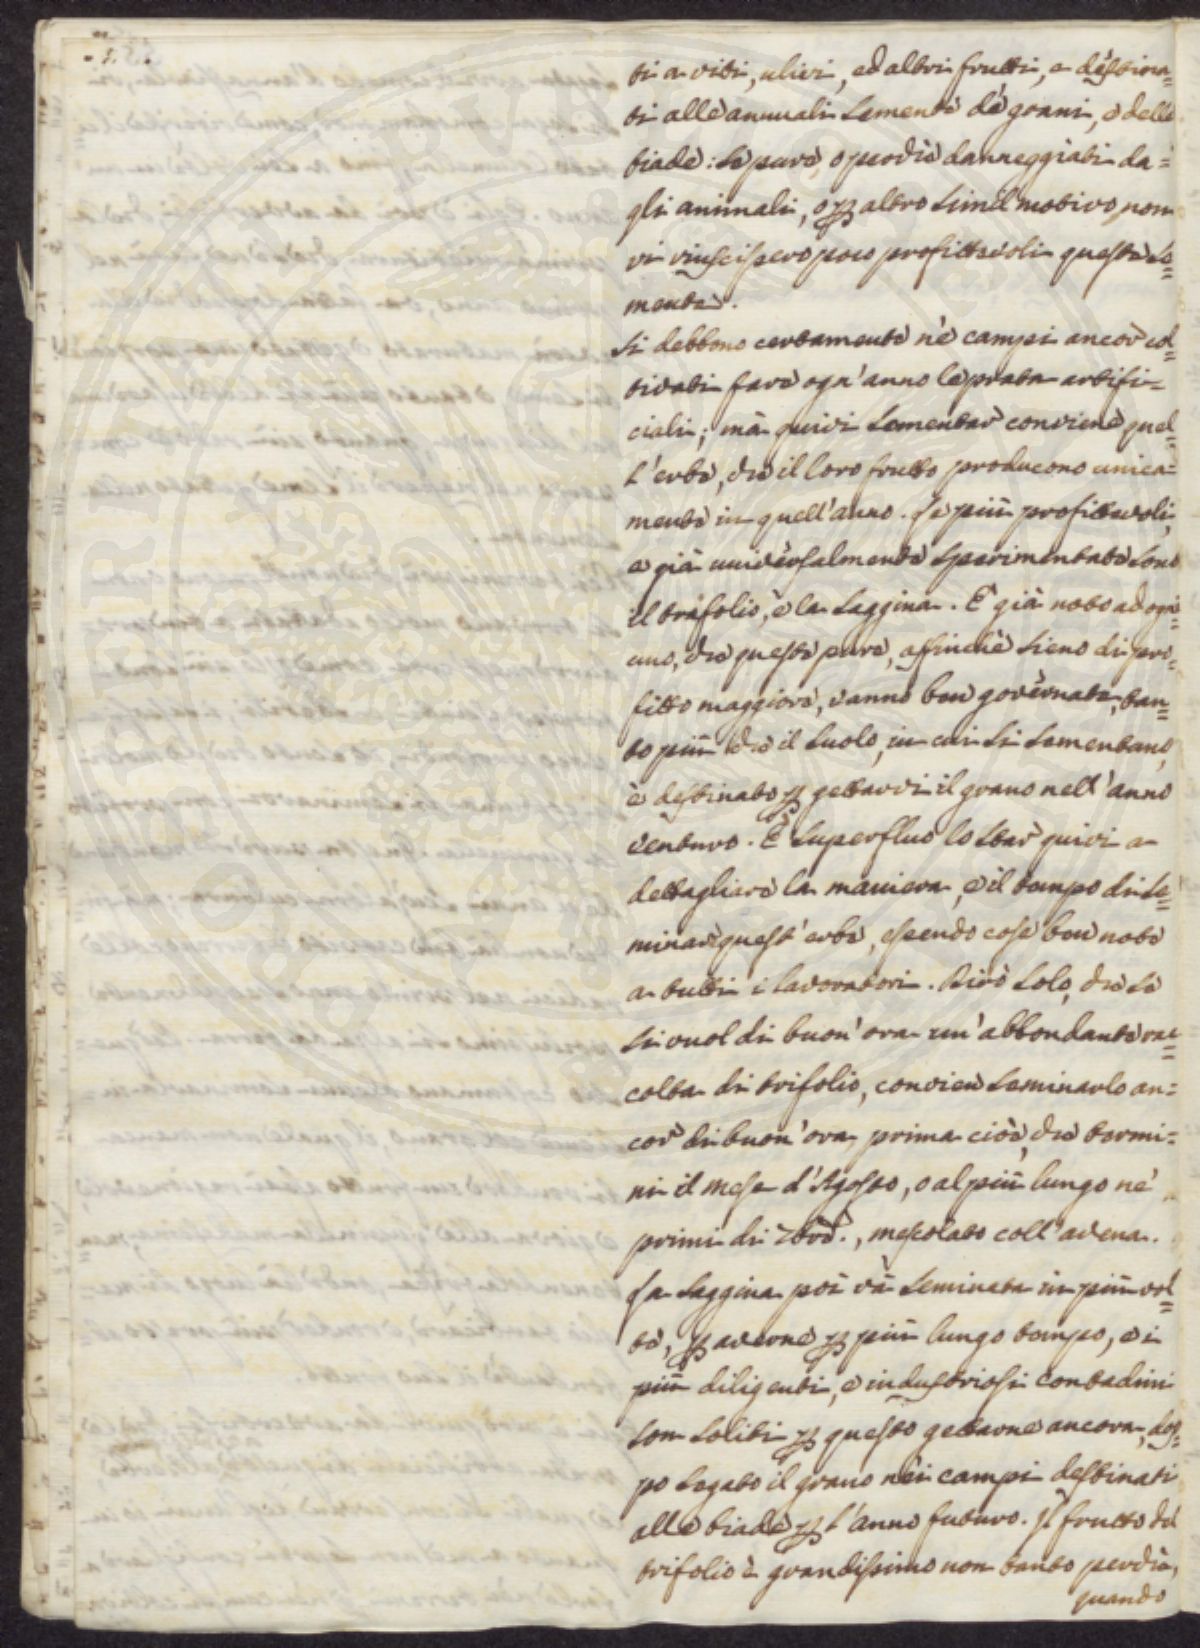 ti a viti, ulivi, ed altri frutti, e destina=
ti alle annuali sementè dà grani, e delle
biade: se pure, o perchè danneggiati da=
gli animali, o per altro simil motivo, non
vi riuscissero poco profittevoli queste se=
mente.
Si debbono certamente nè campi ancor col=
tivati fare ogn'anno le prata artifi=
ciali; mà quivi sementar conviene quel=
l'erbe, che il loro frutto producono unica=
mente in quell'anno. Le più profittevoli,
e già universalmente sperimentate sono
il trafolio, e la saggina. È già noto ad ogni=
uno, che queste pure, affinchè sieno di pro=
fitto maggiore, vanno ben governate, tan=
to più che il suolo, in cui si sementano,
è destinato per gettarvi il grano nell'anno
venturo. È superfluo lo star quivi a
dettagliare la maniera, e il tempo di se=
minare quest'erbe, essendo cose ben note
a tutti i lavoratori. Dirò solo, che se
si vuol di buon'ora un'abbondante rac=
colta di trifolio, convien seminarlo an=
cor di buon'ora, prima cioè, che termi=
ni il mese d'Agosto, o al più lungo ne'
primi di 7bre., mescolato coll'avena.
La saggina poi và seminata in più vol=
te, per averne per più lungo tempo, e i
più diligenti, e industriosi contadini
son soliti per questo gettarne ancora, dop=
po segato il grano nei campi destinati
alle biade per l'anno futuro. Il frutto del
trifolio è grandissimo non tanto perchè,
quando